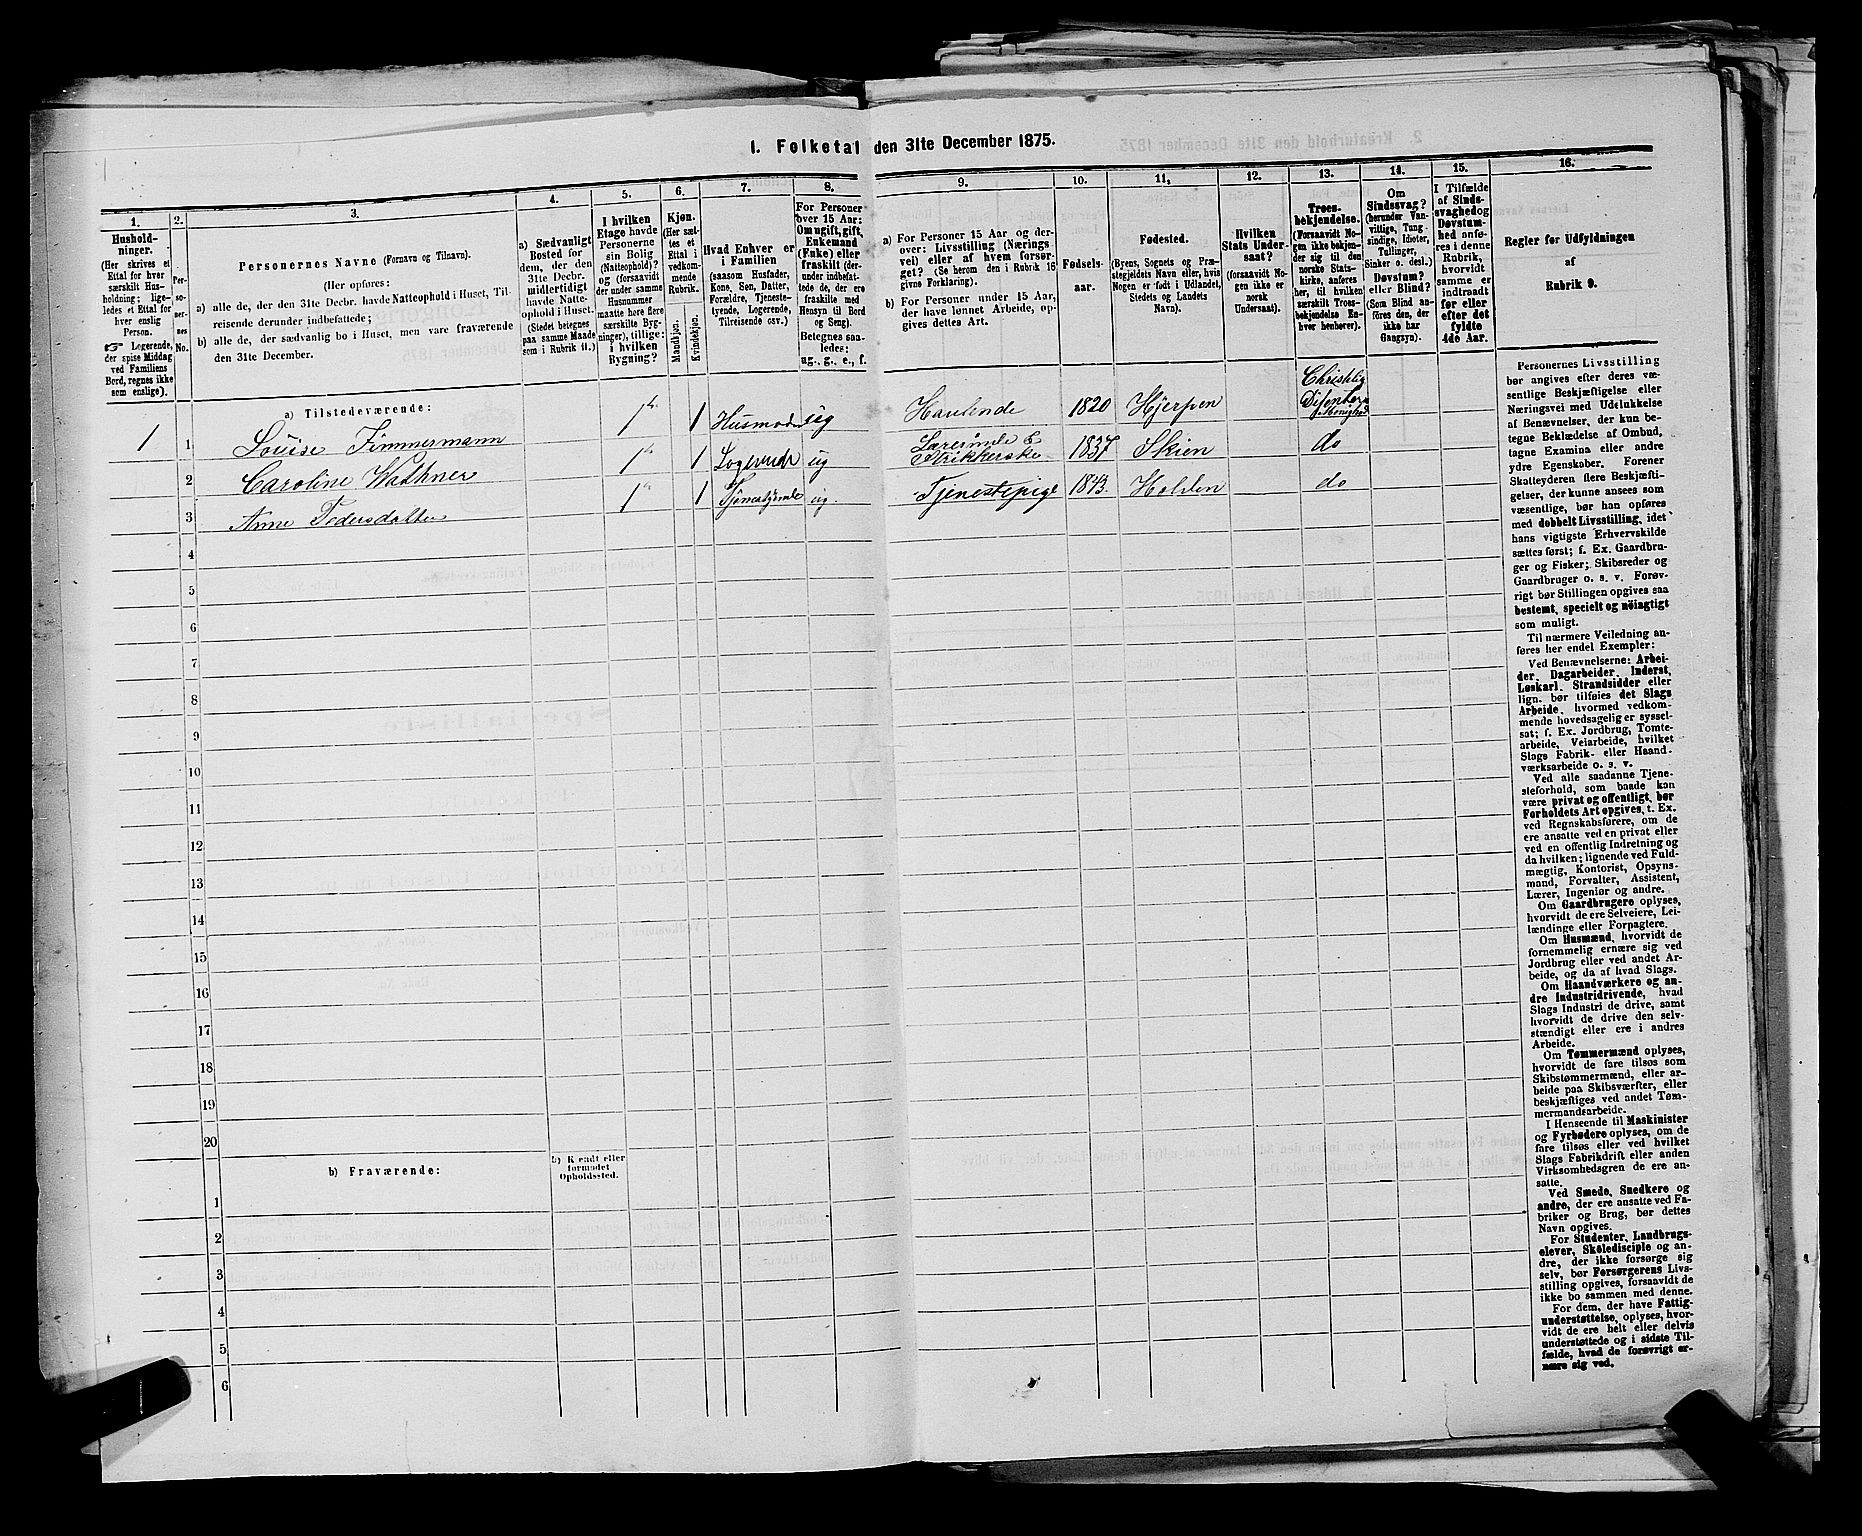 I. Folketal den 31te December 1875.
1.
Husholdninger.
(Her skrives et
Ettal for hver
særskilt Husholdning; ligeledes et Ettal for
hver enslig
Person.
☞ Logerende,
der spise Middag
ved Familiens
Bord, regnes ikke
som enslige).
2.
Personernes
No.
3.
Personernes Navne (Fornavn og Tilnavn).
(Her opføres:
a) alle de, der den 31te Decbr. havde Natteophold i Huset, Tilreisende derunder indbefattede;
b) alle de, der sædvanlig bo i Huset, men vare fraværende
den 31te December.
4.
a) Sædvanligt
Bosted for
dem, der den
31te Decbr.
midlertidigt
havde Natteophold i Huset.
(Stedet betegnes
paa samme Maade
som i Rubrik 11.)
5.
I hvilken
Etage havde
Personerne
sin Bolig
(Natteophold)?
og (forsaavidt
der under samme
Husnummer
maatte høre flere
særskilte Bygninger), tillige:
i hvilken
Bygning?
6.
Kjøn.
(Her sættes et
Ettal i
vedkommende
Rubrik.
Mandkjøn.
Kvindekjøn.
7.
Hvad Enhver er
i Familien
(saasom Husfader,
Kone, Søn, Datter,
Forældre, Tjenestetyende, Logerende,
Tilreisende osv.)
8.
For Personer
over 15 Aar:
Om ugift, gift,
Enkemand
(Enke) eller
fraskilt (derunder indbefattede de, der ere
fraskilte med
Hensyn til Bord
og Seng).
Betegnes saaledes:
ug., g., e., f.
9.
a) For Personer 15 Aar og derover: Livsstilling (Næringsvei) eller af hvem forsørget? (Se herom den i Rubrik 16
givne Forklaring).
b) For Personer under 15 Aar,
der have lønnet Arbeide, opgives dettes Art.
10.
Fødselsaar.
11,
Fødested.
(Byens, Sognets og Præstegjeldets Navn eller, hvis
Nogen er født i Udlandet,
Stedets og Landets
Navn).
12.
Hvilken
Stats Undersaat?
(forsaavidt Nogen ikke er
norsk
Undersaat).
13.
Troesbekjendelse.
(Forsaavidt Nogen ikke bekjender sig til den
norske Statskirke, anføres
her, til hvilken
særskilt Troesbekjendelse Enhver henhører).
14.
Om
Sindssvag?
(herunder Vanvittige, Tungsindige, Idioter,
Tullinger,
Sinker o. desl.)
Døvstum?
eller Blind?
(Som Blind anføres den, der
ikke har
Gangsyn).
15.
I Tilfælde
af Sindssvaghed og
Døvstumhed anføres i denne
Rubrik,
hvorvidt
samme er
indtraadt
før eller
efter det
fyldte
4de Aar.
16.
Regler for Udfyldningen
af
Rubrik 9.
a) Tilstedeværende:
1 1 Louise Zimmermann 1ste 1 Husmoder ug Haulende 1820 Hjerpen Christelig Disenter Menighed
2 Caroline Wathner 1ste 1 Logerende ug Lærerinde & Strikkerske 1837 Skien do
3 Anne Pedersdatter 1 1 Tjenestetyende ug. Tjenestepige 1843. Holden do
4
5
6
7
8
9
10
11
12
13
14
15
16
17
18
19
20
b) Fraværende:
b) Kjendt eller
formodet
Opholdssted.
1
2
3
4
5
6
Personernes Livsstilling
bør angives efter deres væsentlige Beskjæftigelse eller
Næringsvei med Udelukkelse
af Benævnelser, der kun betegne Beklædelse af Ombud,
tagne Examina eller andre
ydre Egenskaber. Forener
Skatteyderen flere Beskjæftigelser, der kunne ansees som
væsentlige, bør han opføres
med dobbelt Livsstilling, idet
hans vigtigste Erhvervskilde
sættes først; f. Ex. Gaardbruger og Fisker; Skibsreder og
Gaardbruger o. s. v. Forøvrigt bør Stillingen opgives saa
bestemt, specielt og nöiagtigt
som muligt.
Til nærmere Veiledning anføres her endel Exempler:
Ved Benævnelserne: Arbeider, Dagarbeider, Inderst,
Løskarl, Strandsidder eller
lign. bør tilføies det Slags
Arbeide, hvormed vedkommende hovedsagelig er sysselsat; f. Ex. Jordbrug, Tomtearbeide, Veiarbeide, hvilket
Slags Fabrik- eller Haandværksarbeide o. s. v.
Ved alle saadanne Tjenesteforhold, som baade kan
være privat og offentligt, bør
Forholdets Art opgives, t. Ex.
ved Regnskabsførere, om de
ere ansatte ved en privat eller
ved en offentlig Indretning og
da hvilken; lignende ved Fuldmægtig, Kontorist, Opsynsmand, Forvalter, Assistent,
Lærer, Ingeniør og andre.
Om Gaardbrugere oplyses,
hvorvidt de ere Selveiere, Leilændinge eller Forpagtere.
Om Husmænd, hvorvidt de
fornemmelig ernære sig ved
Jordbrug eller ved andet Arbeide, og da af hvad Slags.
Om Haandværkere og andre Industridrivende, hvad
Slags Industri de drive, samt
hvorvidt de drive den selvstændigt eller ere i andres
Arbeide.
Om Tømmermænd oplyses,
hvorvidt de fare tilsøs som
Skibstømmermænd, eller arbeide paa Skibsværfter, eller
beskjæftiges ved andet Tømmermandsarbeide.
I Henseende til Maskinister
og Fyrbødere oplyses, om de
fare tilsøs eller ved hvilket
Slags Fabrikdrift eller anden
Virksomhedsgren de ere ansatte.
Ved Smede, Snedkere og
andre, der ere ansatte ved Fabriker og Brug, bør dettes
Navn opgives.
For Studenter, Landbrugselever, Skoledisciple og andre, der ikke forsørge sig
selv, bør Forsørgerens Livsstilling opgives, forsaavidt de
ikke bo sammen med denne.
For dem, der have Fattigunderstøttelse, oplyses, hvorvidt de ere helt eller delvis
understøttede og i sidste Tilfælde, hvad de forøvrigt ernære sig ved.